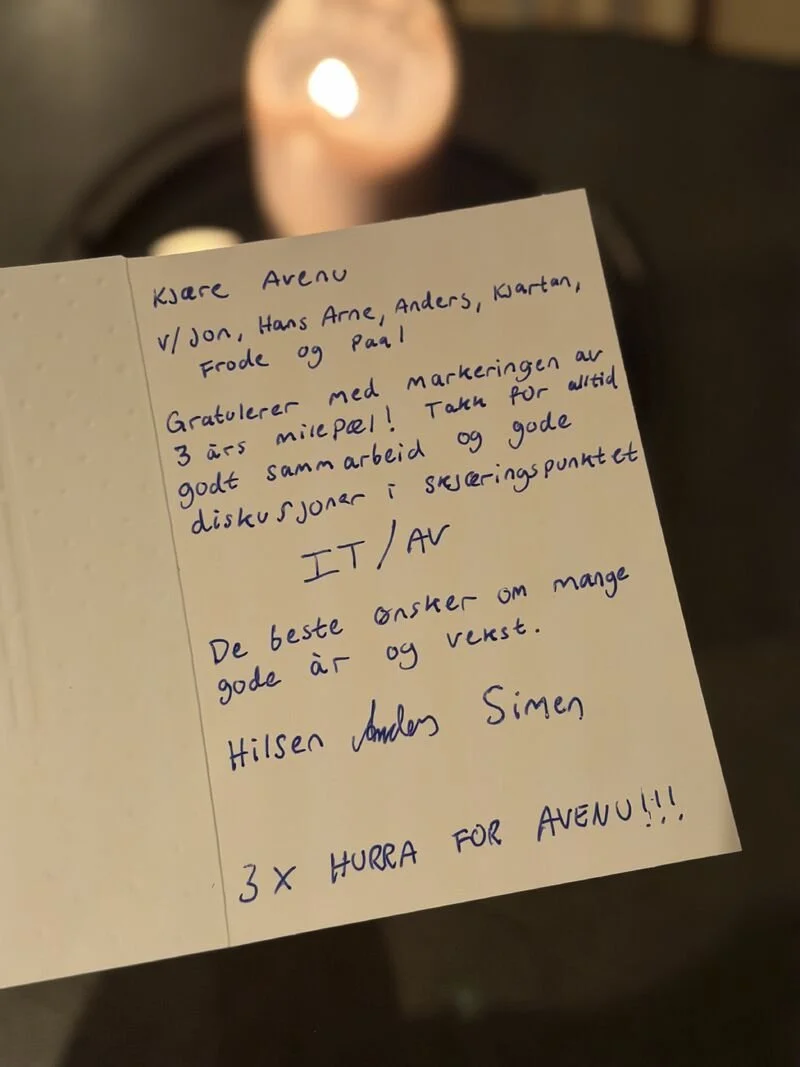 Kjære Avenu
v/ Jon, Hans Arne, Anders, Kjartan,
Frode og Paal
Gratulerer med markeringen av
3 års milepæl! Takk for alltid
godt sammarbeid og gode
diskusjoner i skjæringspunktet
IT/AV
De beste ønsker om mange
gode år og vekst.
Hilsen Anders Simen
3 X HURRA FOR AVENU!!!